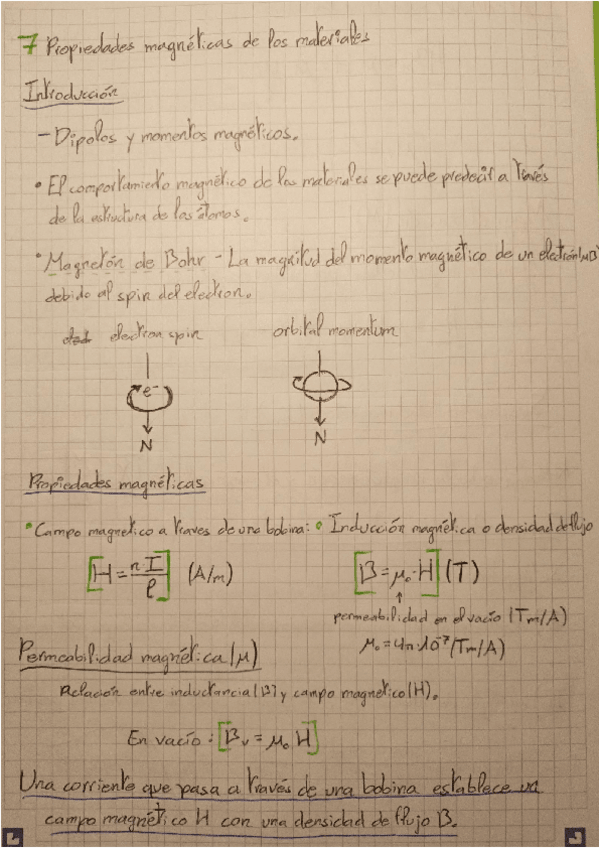 7 Propiedades magnéticas de los materiales
Introducción
- Dipolos y momentos magnéticos.
• El comportamiento magnético de los materiales se puede predecir a través
de la estructura de los átomos.
• Magnetón de Bohr - La magnitud del momento magnético de un electrón (μB)
debido al spin del electron.
electron spin orbital momentum
e-
N N
Propiedades magnéticas
• Campo magnetico a traves de una bobina: • Inducción magnética o densidad de flujo
[H = nI/l] (A/m) [B = μ₀·H] (T)
↑
permeabilidad en el vacío (Tm/A)
μ₀ = 4π·10⁻⁷ (Tm/A)
Permeabilidad magnética (μ)
Relación entre inductancia (B) y campo magnetico (H).
En vacío: [Bv = μ₀ H]
Una corriente que pasa a través de una bobina establece un
campo magnético H con una densidad de flujo B.